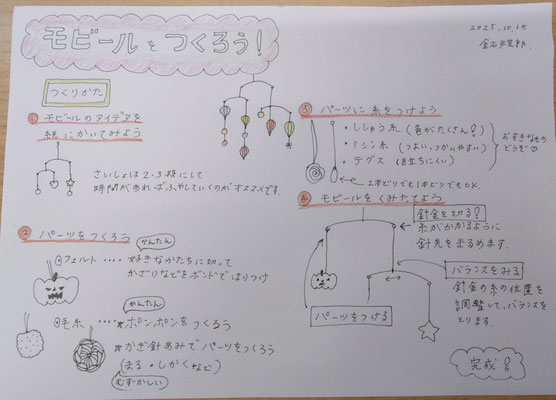 モビールをつくろう!
2025.10.15
つくりかた
① モビールのアイデアを
紙にかいてみよう
さいしょは2・3段にして
時間があればふやしていくのがオススメです。
② パーツをつくろう
かんたん
◎フェルト ‥‥ 好きなかたちに切って
かざりなどをボンドではりつけ
かんたん
◎毛糸 ‥‥ ★ポンポンをつくろう
★かぎ針あみでパーツをつくろう
(まる・しかくなど)
むずかしい
③ パーツに糸をつけよう
・ししゅう糸 (色がたくさん!)
・ミシン糸 (つよい、つかいやすい)
・テグス (目立ちにくい)
おすきなもの
どうぞ♡
2本どりでも1本どりでもOK.
④ モビールをくみたてよう
針金を切る!
糸がかかるように
針先をまるめます。
バランスをみる
針金の糸の位置を
調整して、バランスを
とります。
パーツをつける
完成!